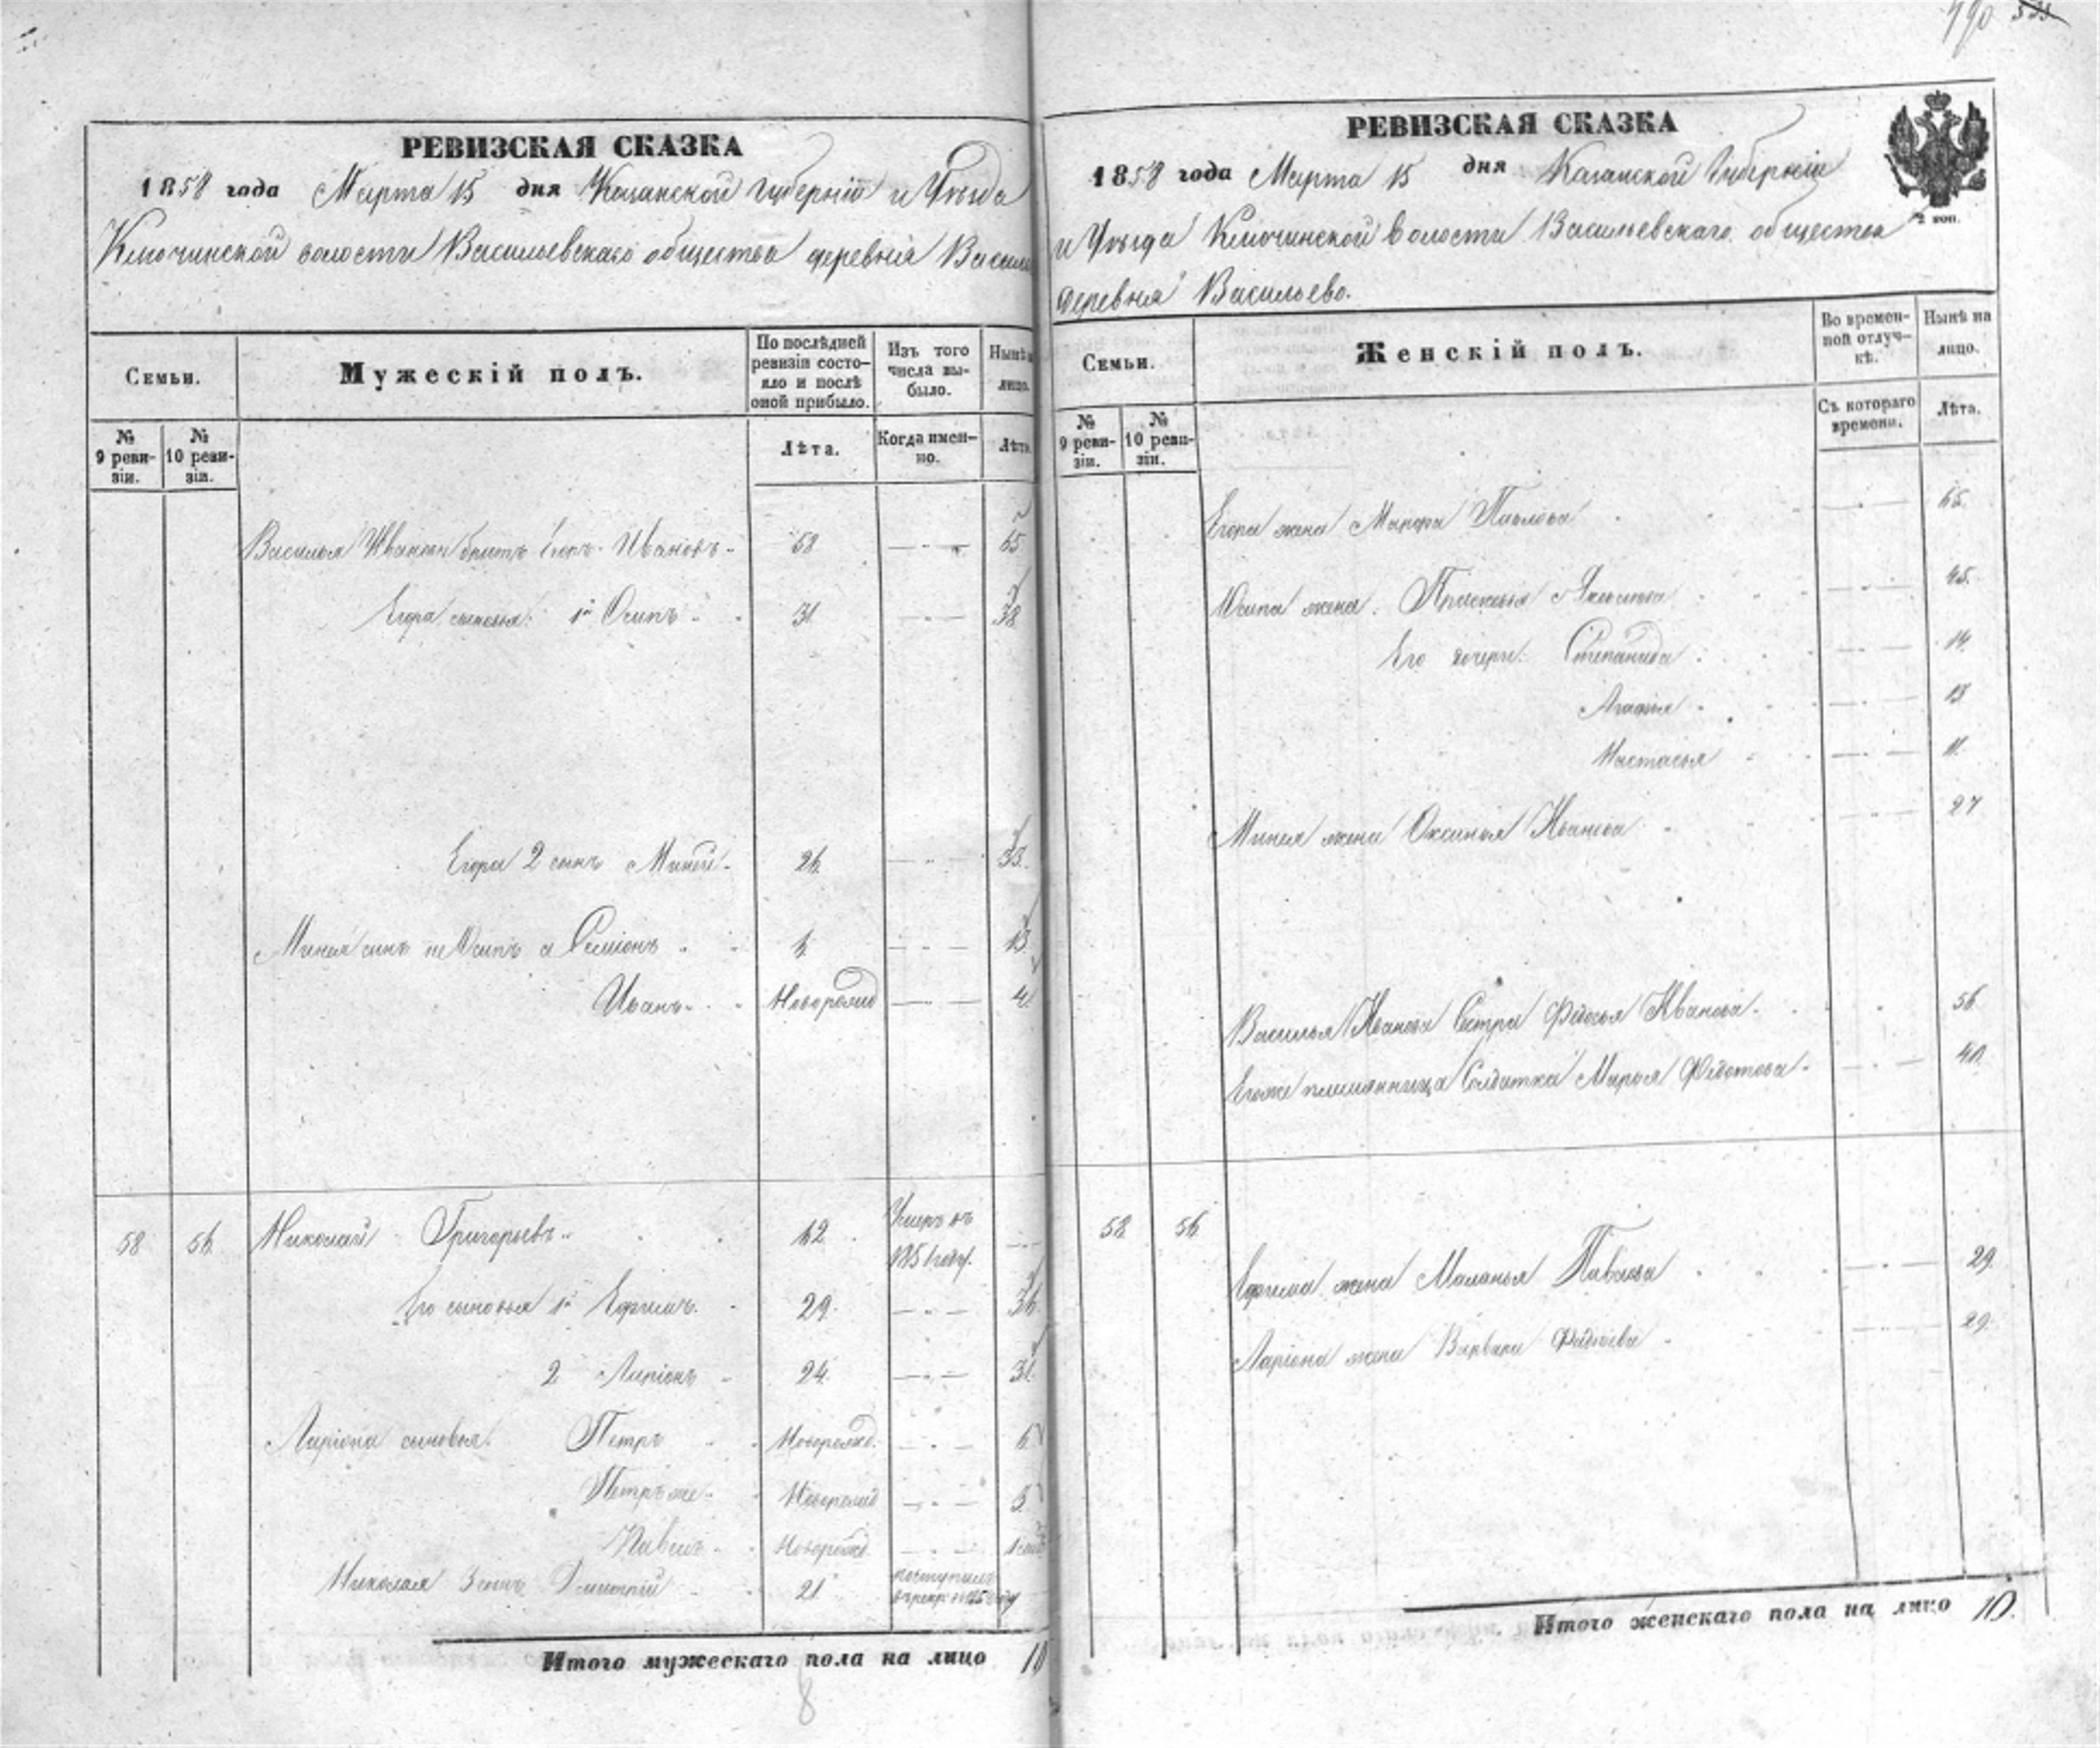 РЕВИЗСКАЯ СКАЗКА
1858 года Марта 15 дня Казанской губерніи и Уѣзда
Ключинской волости Васильевскаго общества деревня
Семьи.
Мужескій полъ.
По послѣдней ревизіи состояло и послѣ оной прибыло.
Изъ того числа выбыло.
Нынѣ на лицо.
№ 9 ревизіи.
№ 10 ревизіи.
Лѣта.
Когда именно.
Лѣта.
Василья Иванова братъ Егоръ Ивановъ 58 65
Егора сыновья: 1й Осипъ 31 38
Егора 2 сынъ Миней 26 33.
Минея сынъ не Осипъ а Семіонъ 6 13
Иванъ Новорожд 4
58 56 Николай Григорьевъ 62 Умеръ въ
1851 году.
Его сыновья 1й Ефимъ 29 36
2 Ларіонъ 24 31
Ларіона сыновья: Петръ Новорожд. 6
Петръ же Новорожд 3
Павелъ Новорожд.
Николая 3 сынъ Дмитрій 21 поступилъ
Итого мужескаго пола на лицо 10
8
490
РЕВИЗСКАЯ СКАЗКА
1858 года Марта 15 дня Казанской Губерніи
2 коп.
и Уѣзда Ключинской волости Васильевскаго общества
деревня Васильево.
Семьи.
Женскій полъ.
Во временной отлучкѣ.
Нынѣ на лицо.
№ 9 ревизіи.
№ 10 ревизіи.
Съ котораго времени.
Лѣта.
Егора жена Марфа Павлова 65.
Осипа жена Прасковья 45.
Его дочери: Степанида 14.
Агафья 13
Настасья 11.
Минея жена Оксинья Иванова 27
Василья Иванова Сестра Федосья Иванова 56
Егоже племянница Солдатка Марья Федотова 40
58 56
Ефима жена Маланья Павлова 29
Ларіона жена Варвара 29.
Итого женскаго пола на лицо 10.